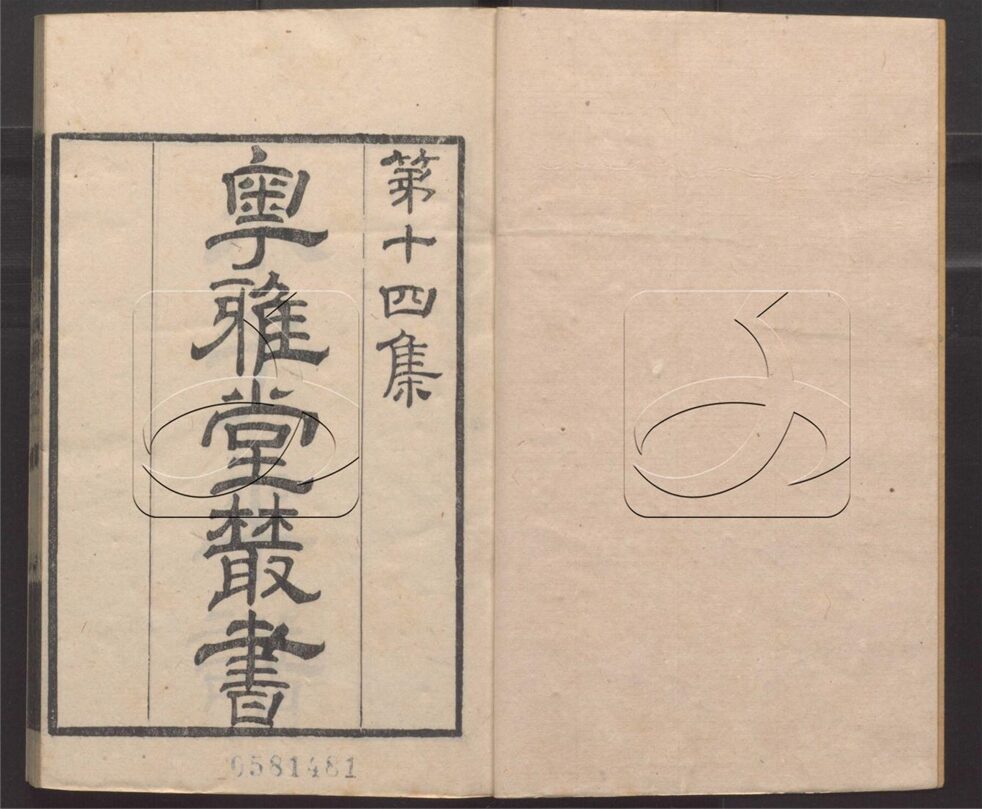 第十四集
粵雅堂叢書
0581481